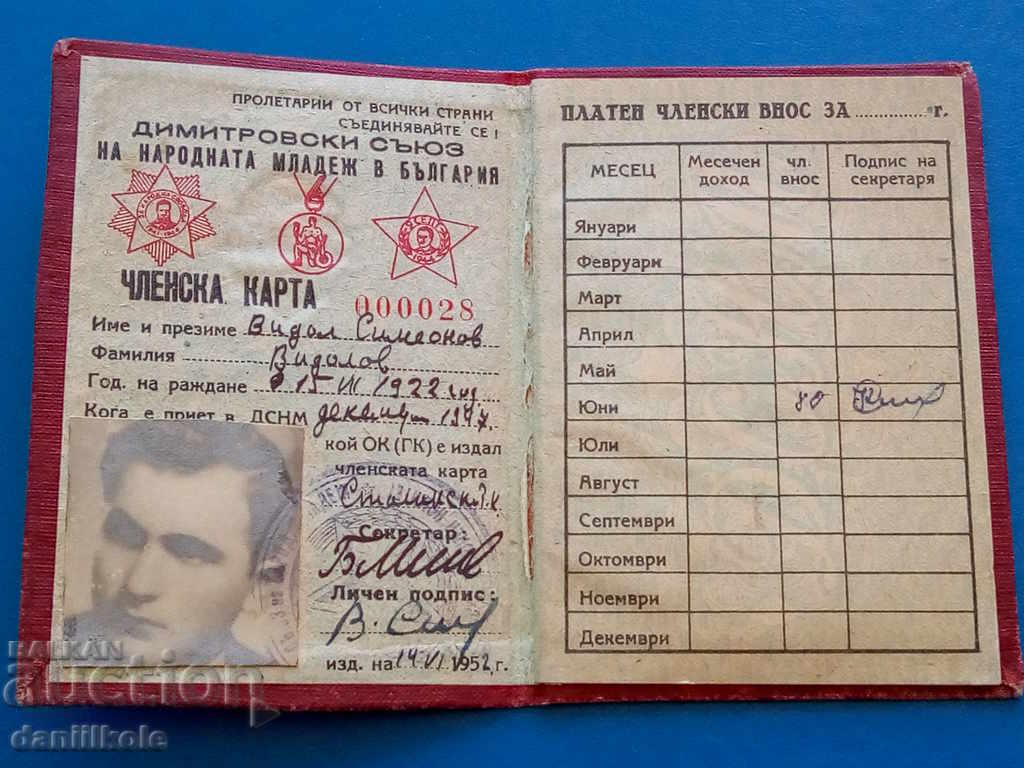 ПРОЛЕТАРИИ ОТ ВСИЧКИ СТРАНИ
СЪЕДИНЯВАЙТЕ СЕ!
ДИМИТРОВСКИ СЪЮЗ
НА НАРОДНАТА МЛАДЕЖ В БЪЛГАРИЯ
ЧЛЕНСКА КАРТА 000028
Име и презиме Видол Симеонов
Фамилия Видолов
Год. на раждане 15 III 1922 год
Кога е приет в ДСНМ декември 1947.
кой ОК (ГК) е издал
членската карта
Сталински
Секретар:
Личен подпис:
изд. на 14 VI 1952 г.
ПЛАТЕН ЧЛЕНСКИ ВНОС ЗА г.
МЕСЕЦ Месечен доход чл. внос Подпис на секретаря
Януари
Февруари
Март
Април
Май
Юни 80
Юли
Август
Септември
Октомври
Ноември
Декември
BALKAN
auction
daniilkole